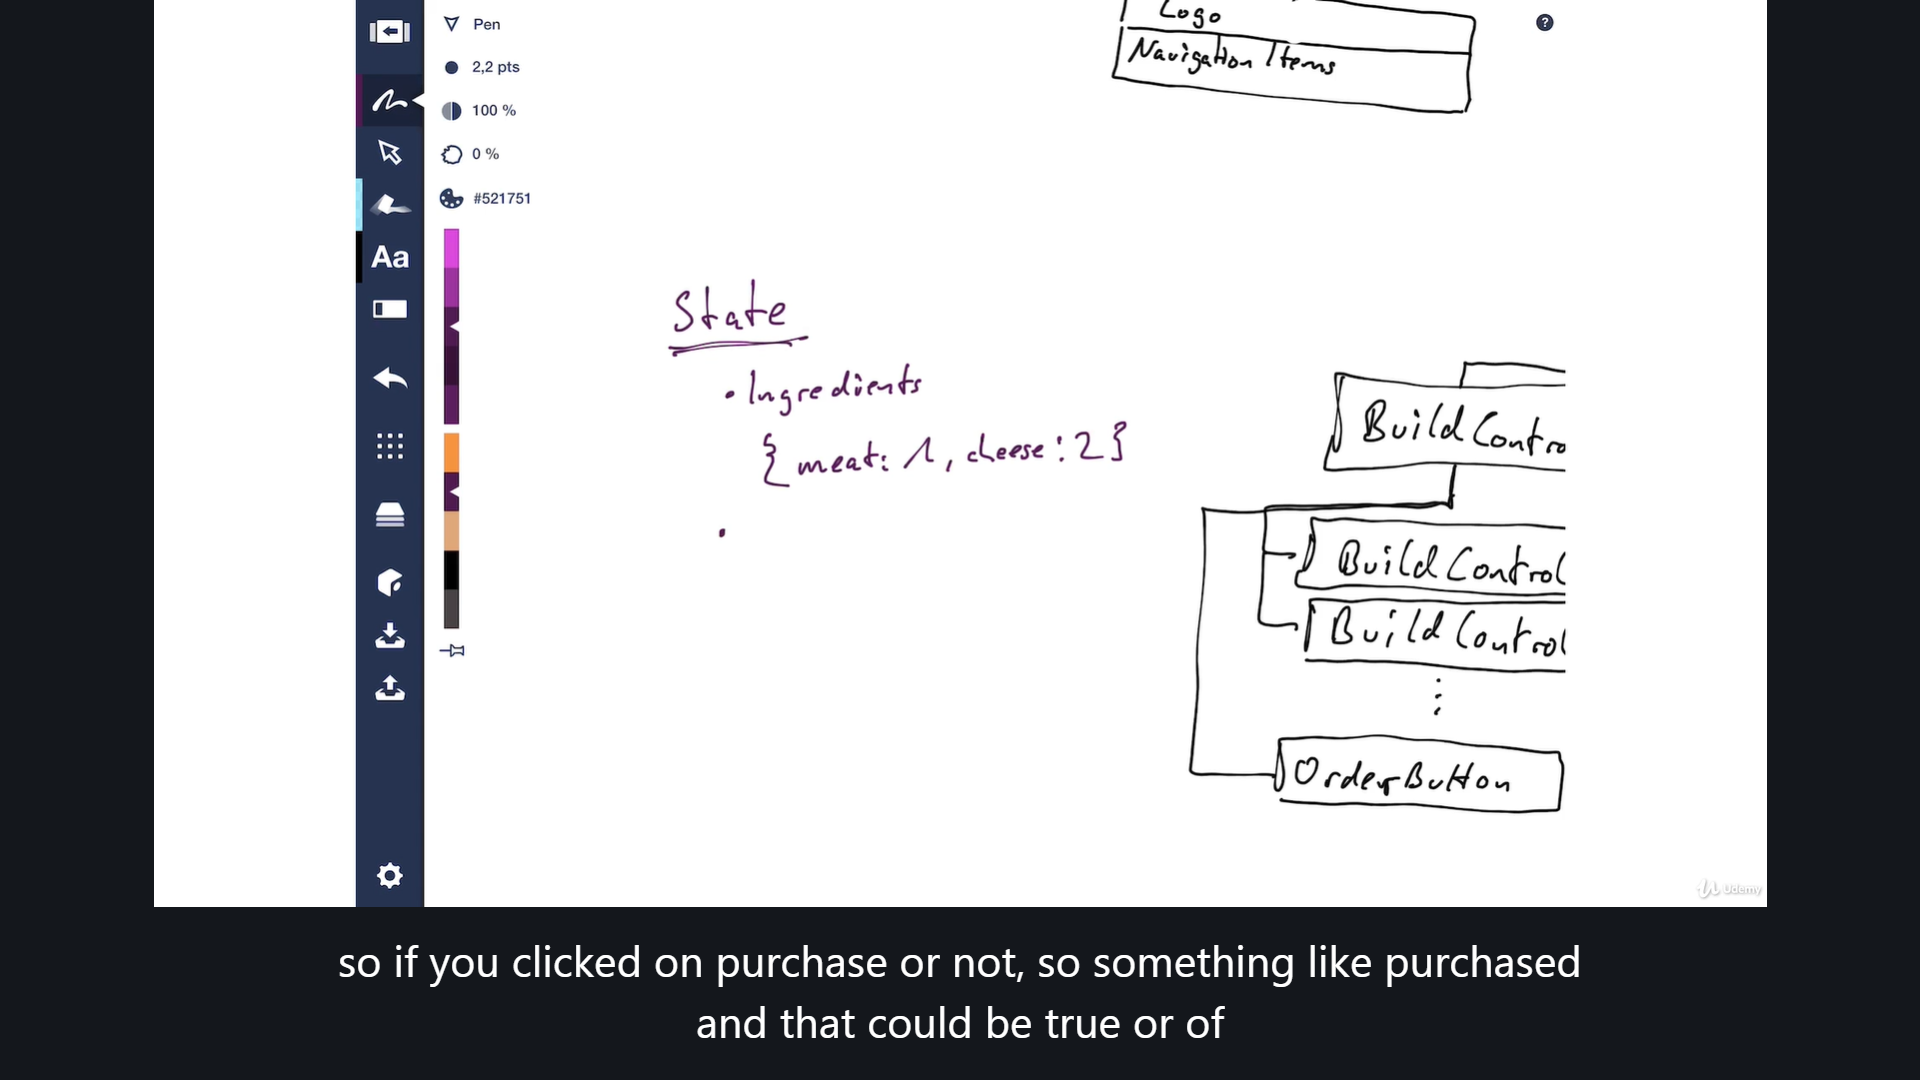 Pen
2,2 pts
100 %
0 %
#521751
Aa
?
Logo
Navigation Items
State
• Ingredients
{ meat: 1, cheese: 2 }
•
Build Contro
Build Control
Build Control
⋮
OrderButton
Udemy
so if you clicked on purchase or not, so something like purchased
and that could be true or of